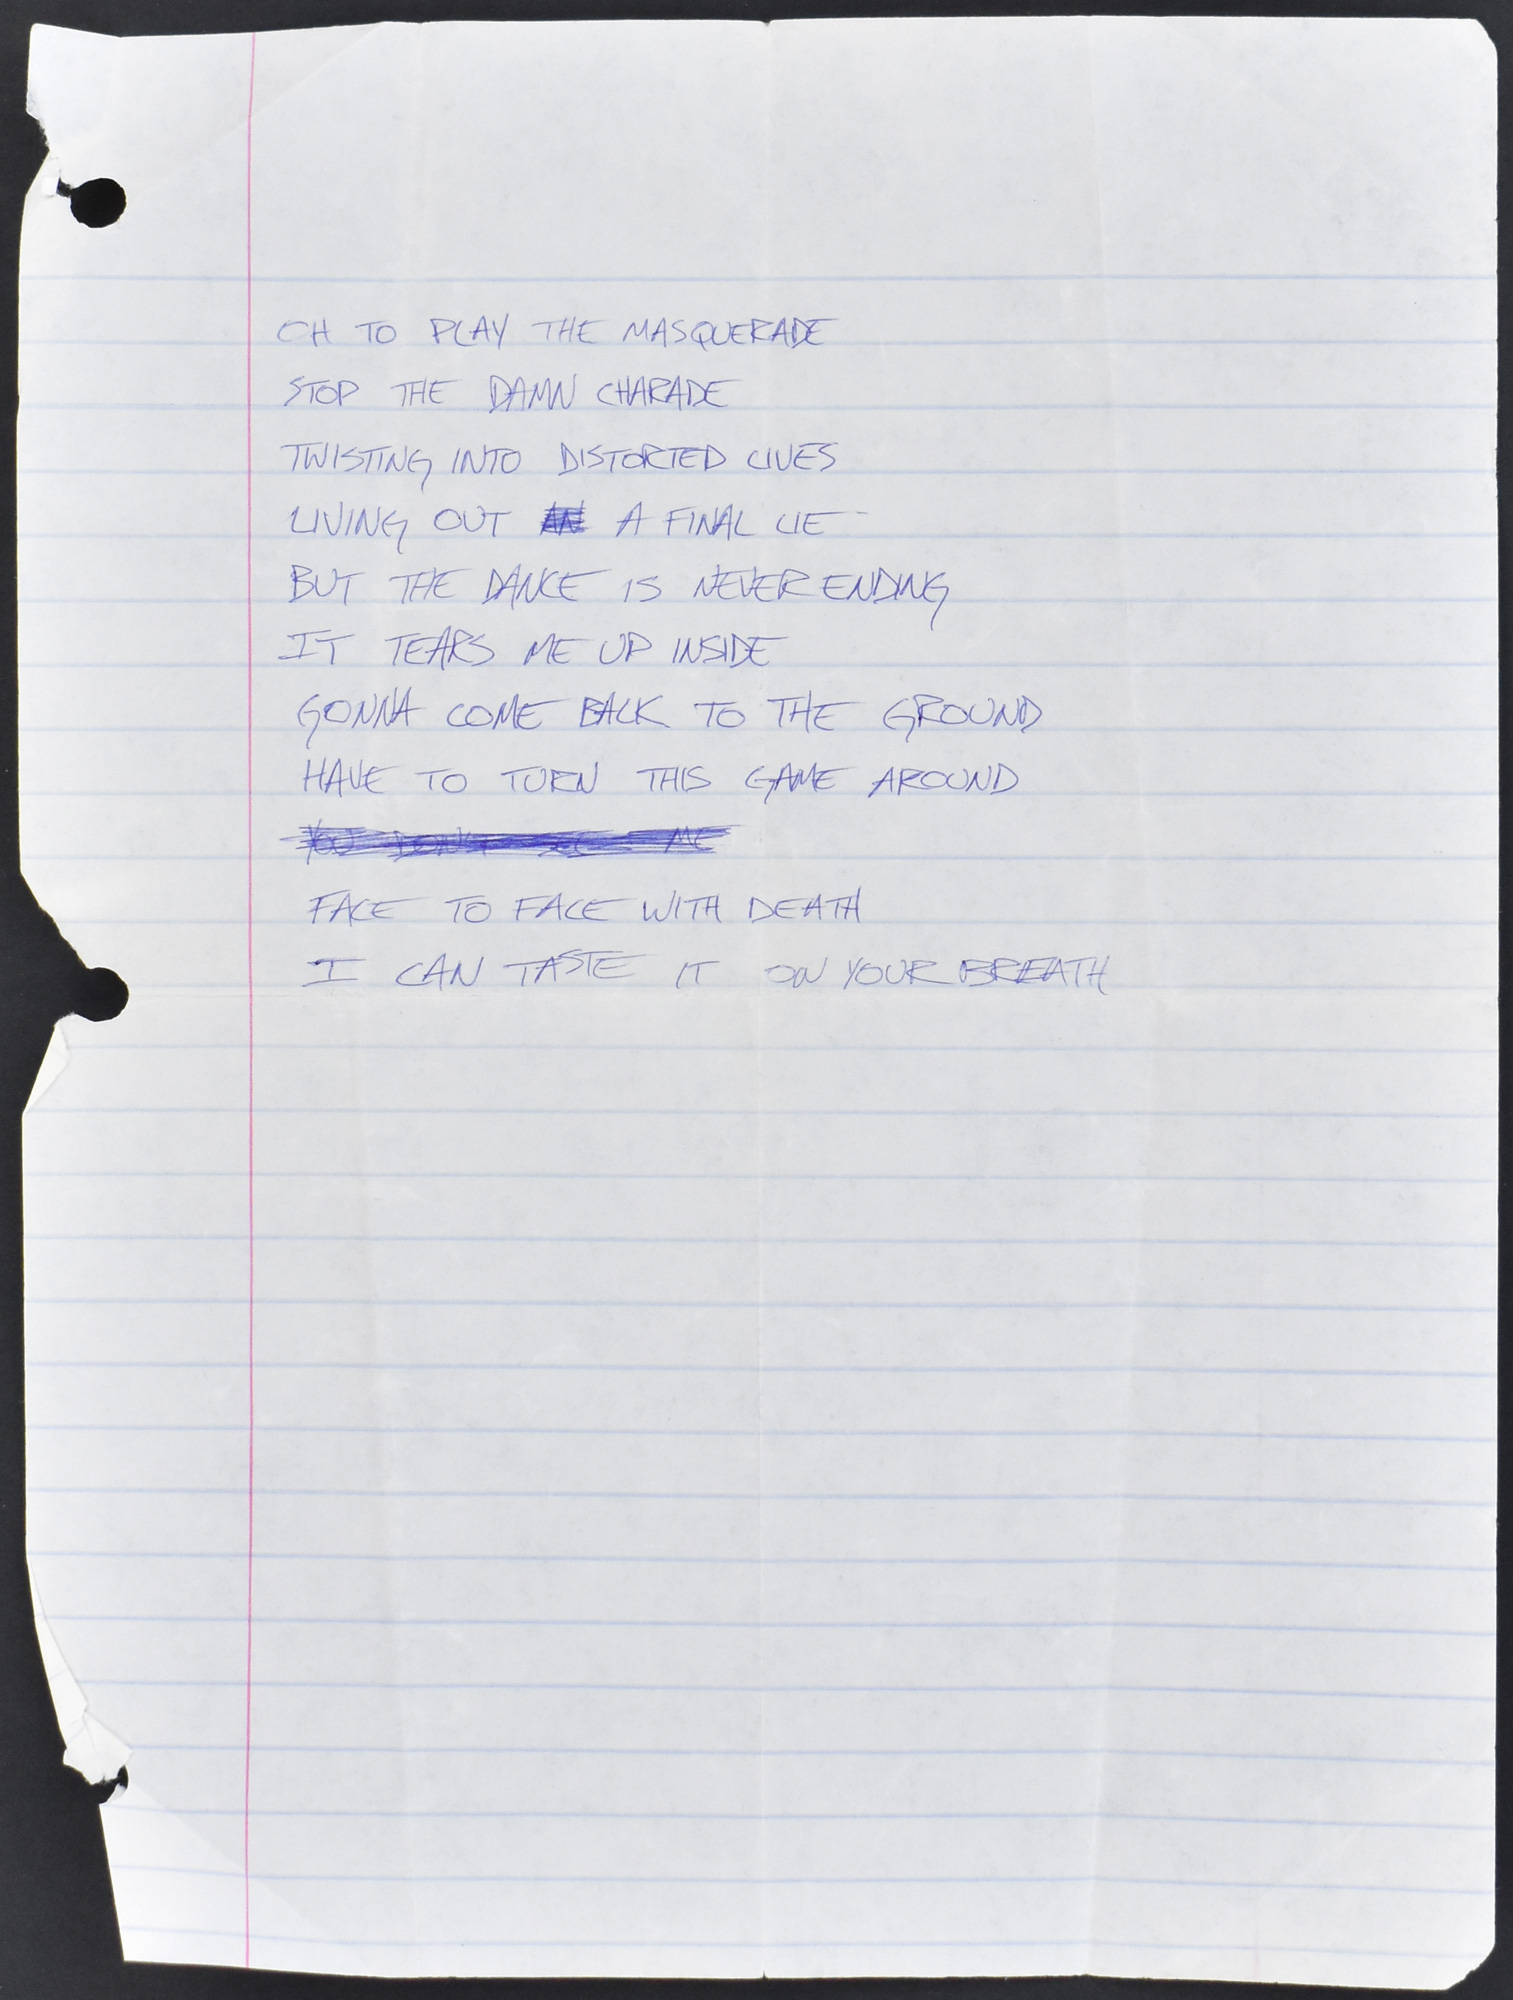 OH TO PLAY THE MASQUERADE
STOP THE DAMN CHARADE
TWISTING INTO DISTORTED LIVES
LIVING OUT AN A FINAL LIE
BUT THE DANCE IS NEVER ENDING
IT TEARS ME UP INSIDE
GONNA COME BACK TO THE GROUND
HAVE TO TURN THIS GAME AROUND
YOU DON'T SEE ME
FACE TO FACE WITH DEATH
I CAN TASTE IT ON YOUR BREATH